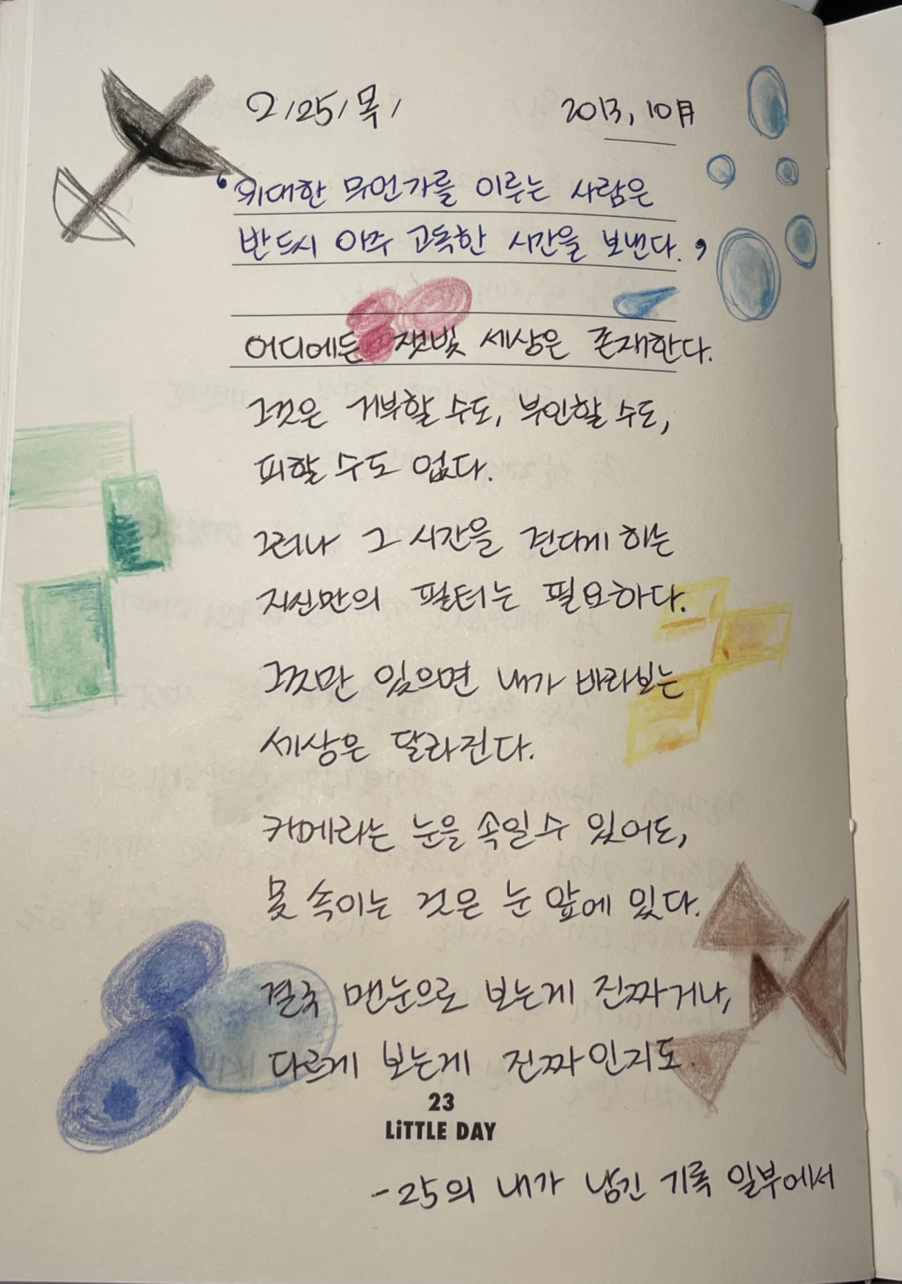 2/25/목/ 2013, 10月
‘위대한 무언가를 이루는 사람은
반드시 아주 고독한 시간을 보낸다.’
어디에든 잿빛 세상은 존재한다.
그것은 거부할 수도, 부인할 수도,
피할 수도 없다.
그러나 그 시간을 견디게 하는
자신만의 필터는 필요하다.
그것만 있으면 내가 바라보는
세상은 달라진다.
카메라는 눈을 속일 수 있어도,
못 속이는 것은 눈 앞에 있다.
결국 맨눈으로 보는게 진짜거나,
다르게 보는게 진짜인지도.
23
LiTTLE DAY
-25의 내가 남긴 기록 일부에서